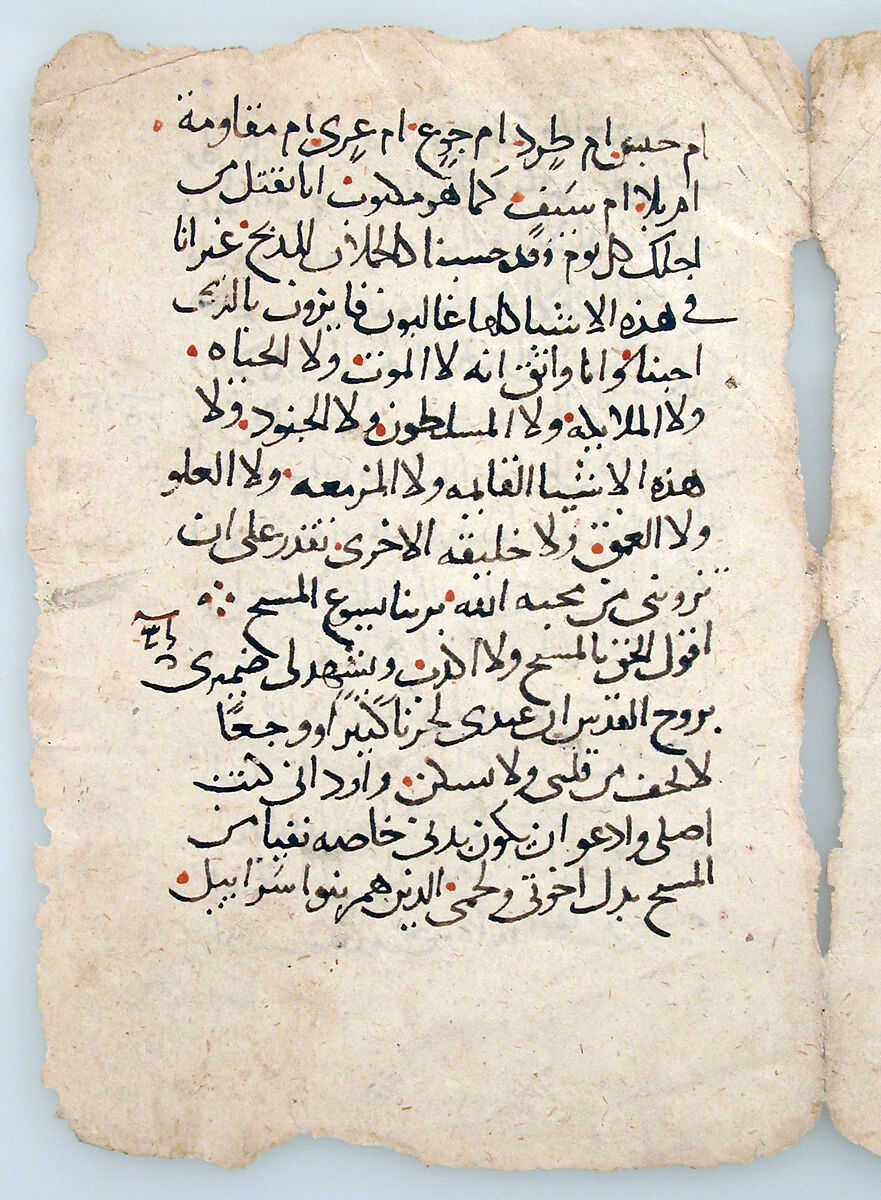 ام حبس ام طرد ام جوع ام عرى ام مقاومة
ام بلا ام سيف كما هو مكتوب انا نقتل من
اجلك كل يوم وقد حسبنا كالحملان للذبح غير انا
فى هذه الاشيا كلها غالبون فايزون بالذى
احبنا وانا واثق انه لا الموت ولا الحياه
ولا الملايكه ولا المسلطون ولا الجنود ولا
هذه الاشيا القايمه ولا المزمعه ولا العلو
ولا العمق ولا خليقه الاخرى تقدر على ان
من محبه الله بربنا يسوع المسيح
اقول الحق بالمسيح ولا اكذب ويشهد لى ضميرى
بروح القدس ان عندى لحزنا كبيرا ووجعًا
لا يخف من قلبى ولا يسكن واود انى كنت
اصلى وادعو ان يكون بدنى خاصه نفيا من
المسيح بدل اخوتى ولحمى الذين هم بنوا سرابيل